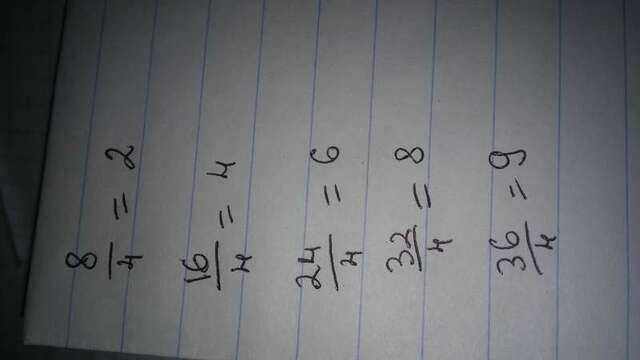 8/4 = 2
16/4 = 4
24/4 = 6
32/4 = 8
36/4 = 9